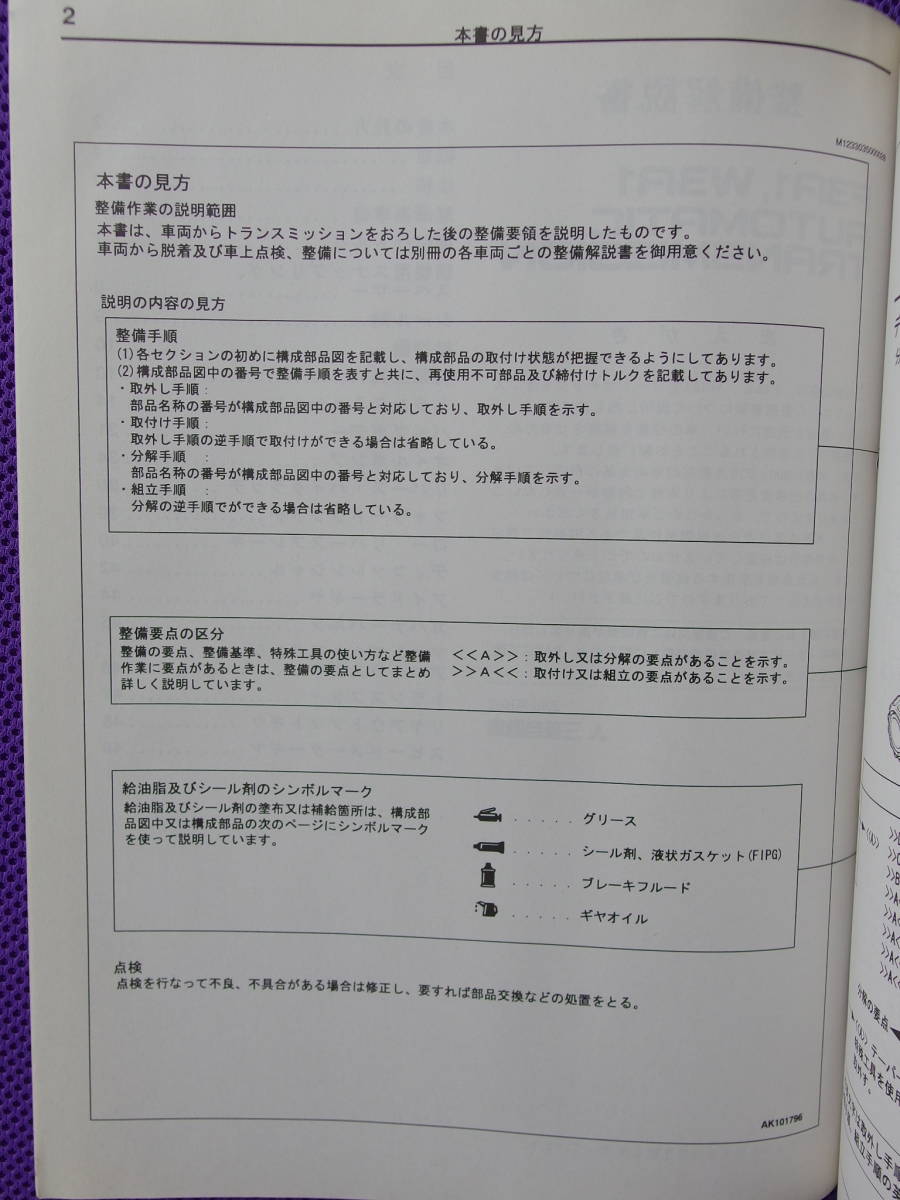 2
本書の見方
M1233035000059
本書の見方
整備作業の説明範囲
本書は、車両からトランスミッションをおろした後の整備要領を説明したものです。
車両から脱着及び車上点検、整備については別冊の各車両ごとの整備解説書を御用意ください。
説明の内容の見方
整備手順
(1)各セクションの初めに構成部品図を記載し、構成部品の取付け状態が把握できるようにしてあります。
(2)構成部品図中の番号で整備手順を表すと共に、再使用不可部品及び締付けトルクを記載してあります。
・取外し手順：
部品名称の番号が構成部品図中の番号と対応しており、取外し手順を示す。
・取付け手順：
取外し手順の逆手順で取付けができる場合は省略している。
・分解手順　：
部品名称の番号が構成部品図中の番号と対応しており、分解手順を示す。
・組立手順　：
分解の逆手順でができる場合は省略している。
整備要点の区分
整備の要点、整備基準、特殊工具の使い方など整備
作業に要点があるときは、整備の要点としてまとめ
詳しく説明しています。
<<A>>：取外し又は分解の要点があることを示す。
>>A<<：取付け又は組立の要点があることを示す。
給油脂及びシール剤のシンボルマーク
給油脂及びシール剤の塗布又は補給箇所は、構成部
品図中又は構成部品の次のページにシンボルマーク
を使って説明しています。
・・・・・ グリース
・・・・・ シール剤、液状ガスケット(FIPG)
・・・・・ ブレーキフルード
・・・・・ ギヤオイル
点検
点検を行なって不良、不具合がある場合は修正し、要すれば部品交換などの処置をとる。
AK101796
分解の要点